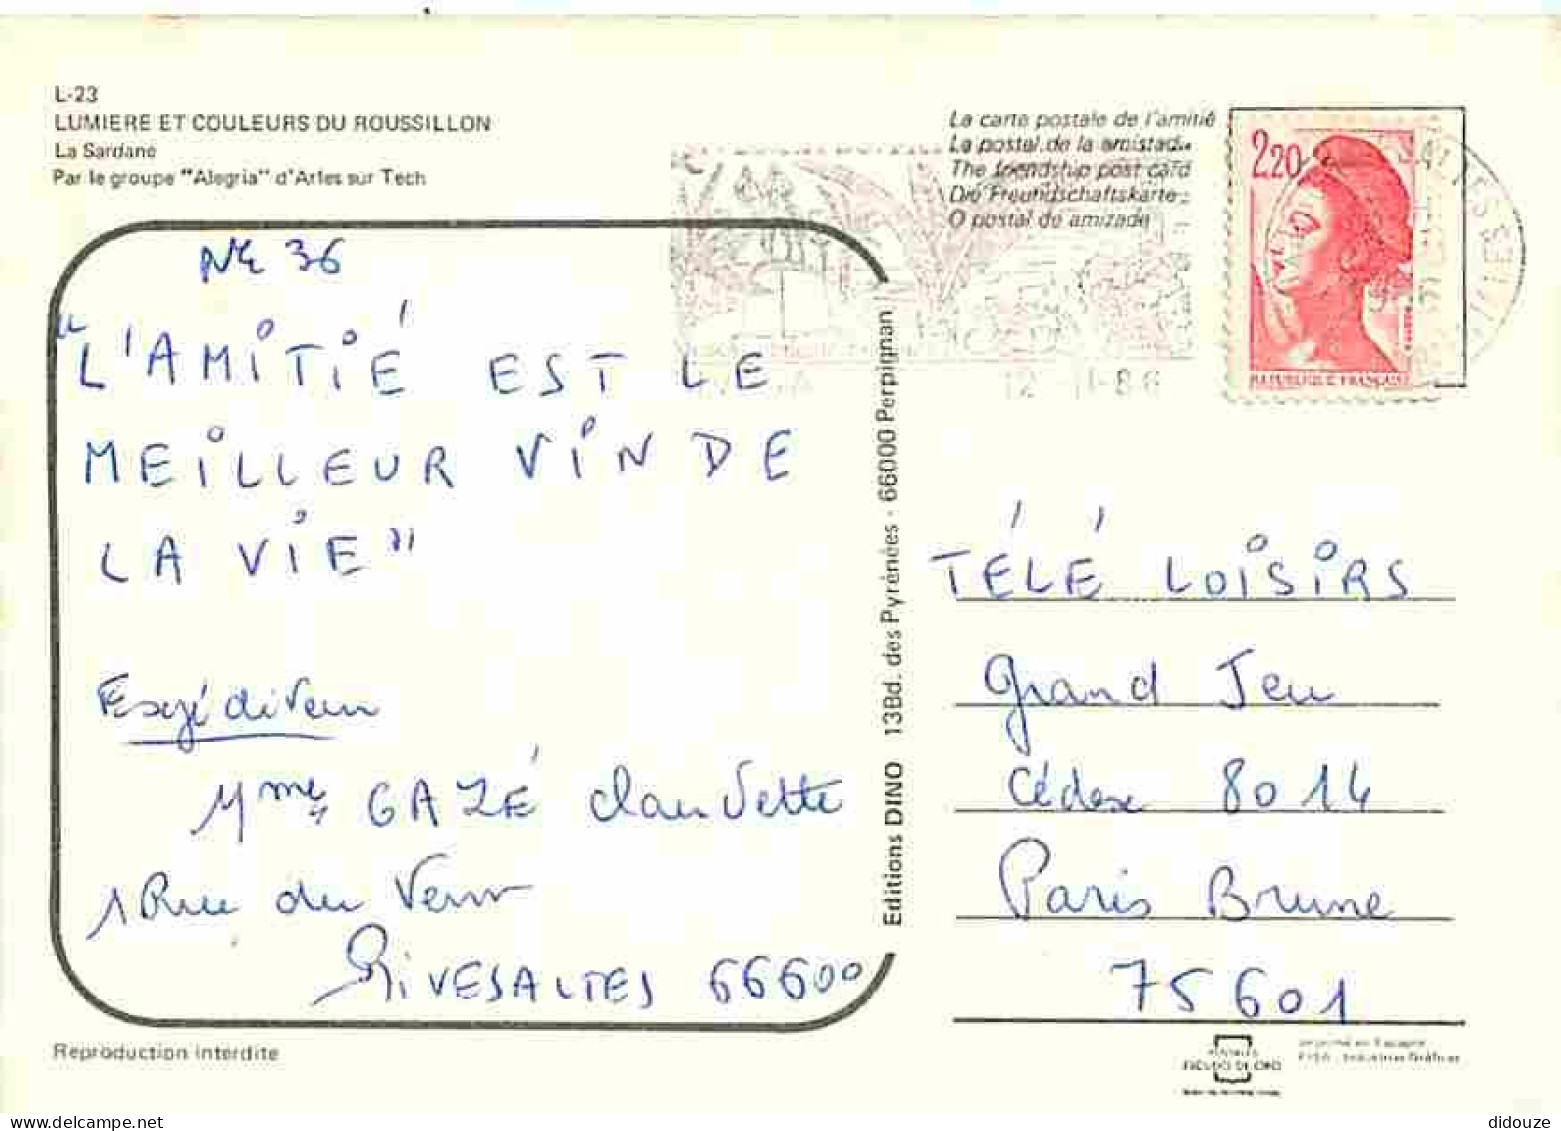 L-23
LUMIERE ET COULEURS DU ROUSSILLON
La Sardane
Par le groupe "Alegria" d'Arles sur Tech
La carte postale de l'amitié
La postal de la amistad
The friendship post card
Die Freundschaftskarte
O postal de amizade
2,20
REPUBLIQUE FRANÇAISE
12-11-86
N° 36
"L'AMITIÉ EST LE
MEILLEUR VIN DE
LA VIE"
Expéditeur
Mme GAZÉ Claudette
1 Rue du
RIVESALTES 66600
Editions DINO 13Bd. des Pyrénées - 66000 Perpignan
TÉLÉ LOISIRS
Grand Jeu
Cédex 8014
Paris Brune
75601
Reproduction interdite
ESCUDO DE ORO